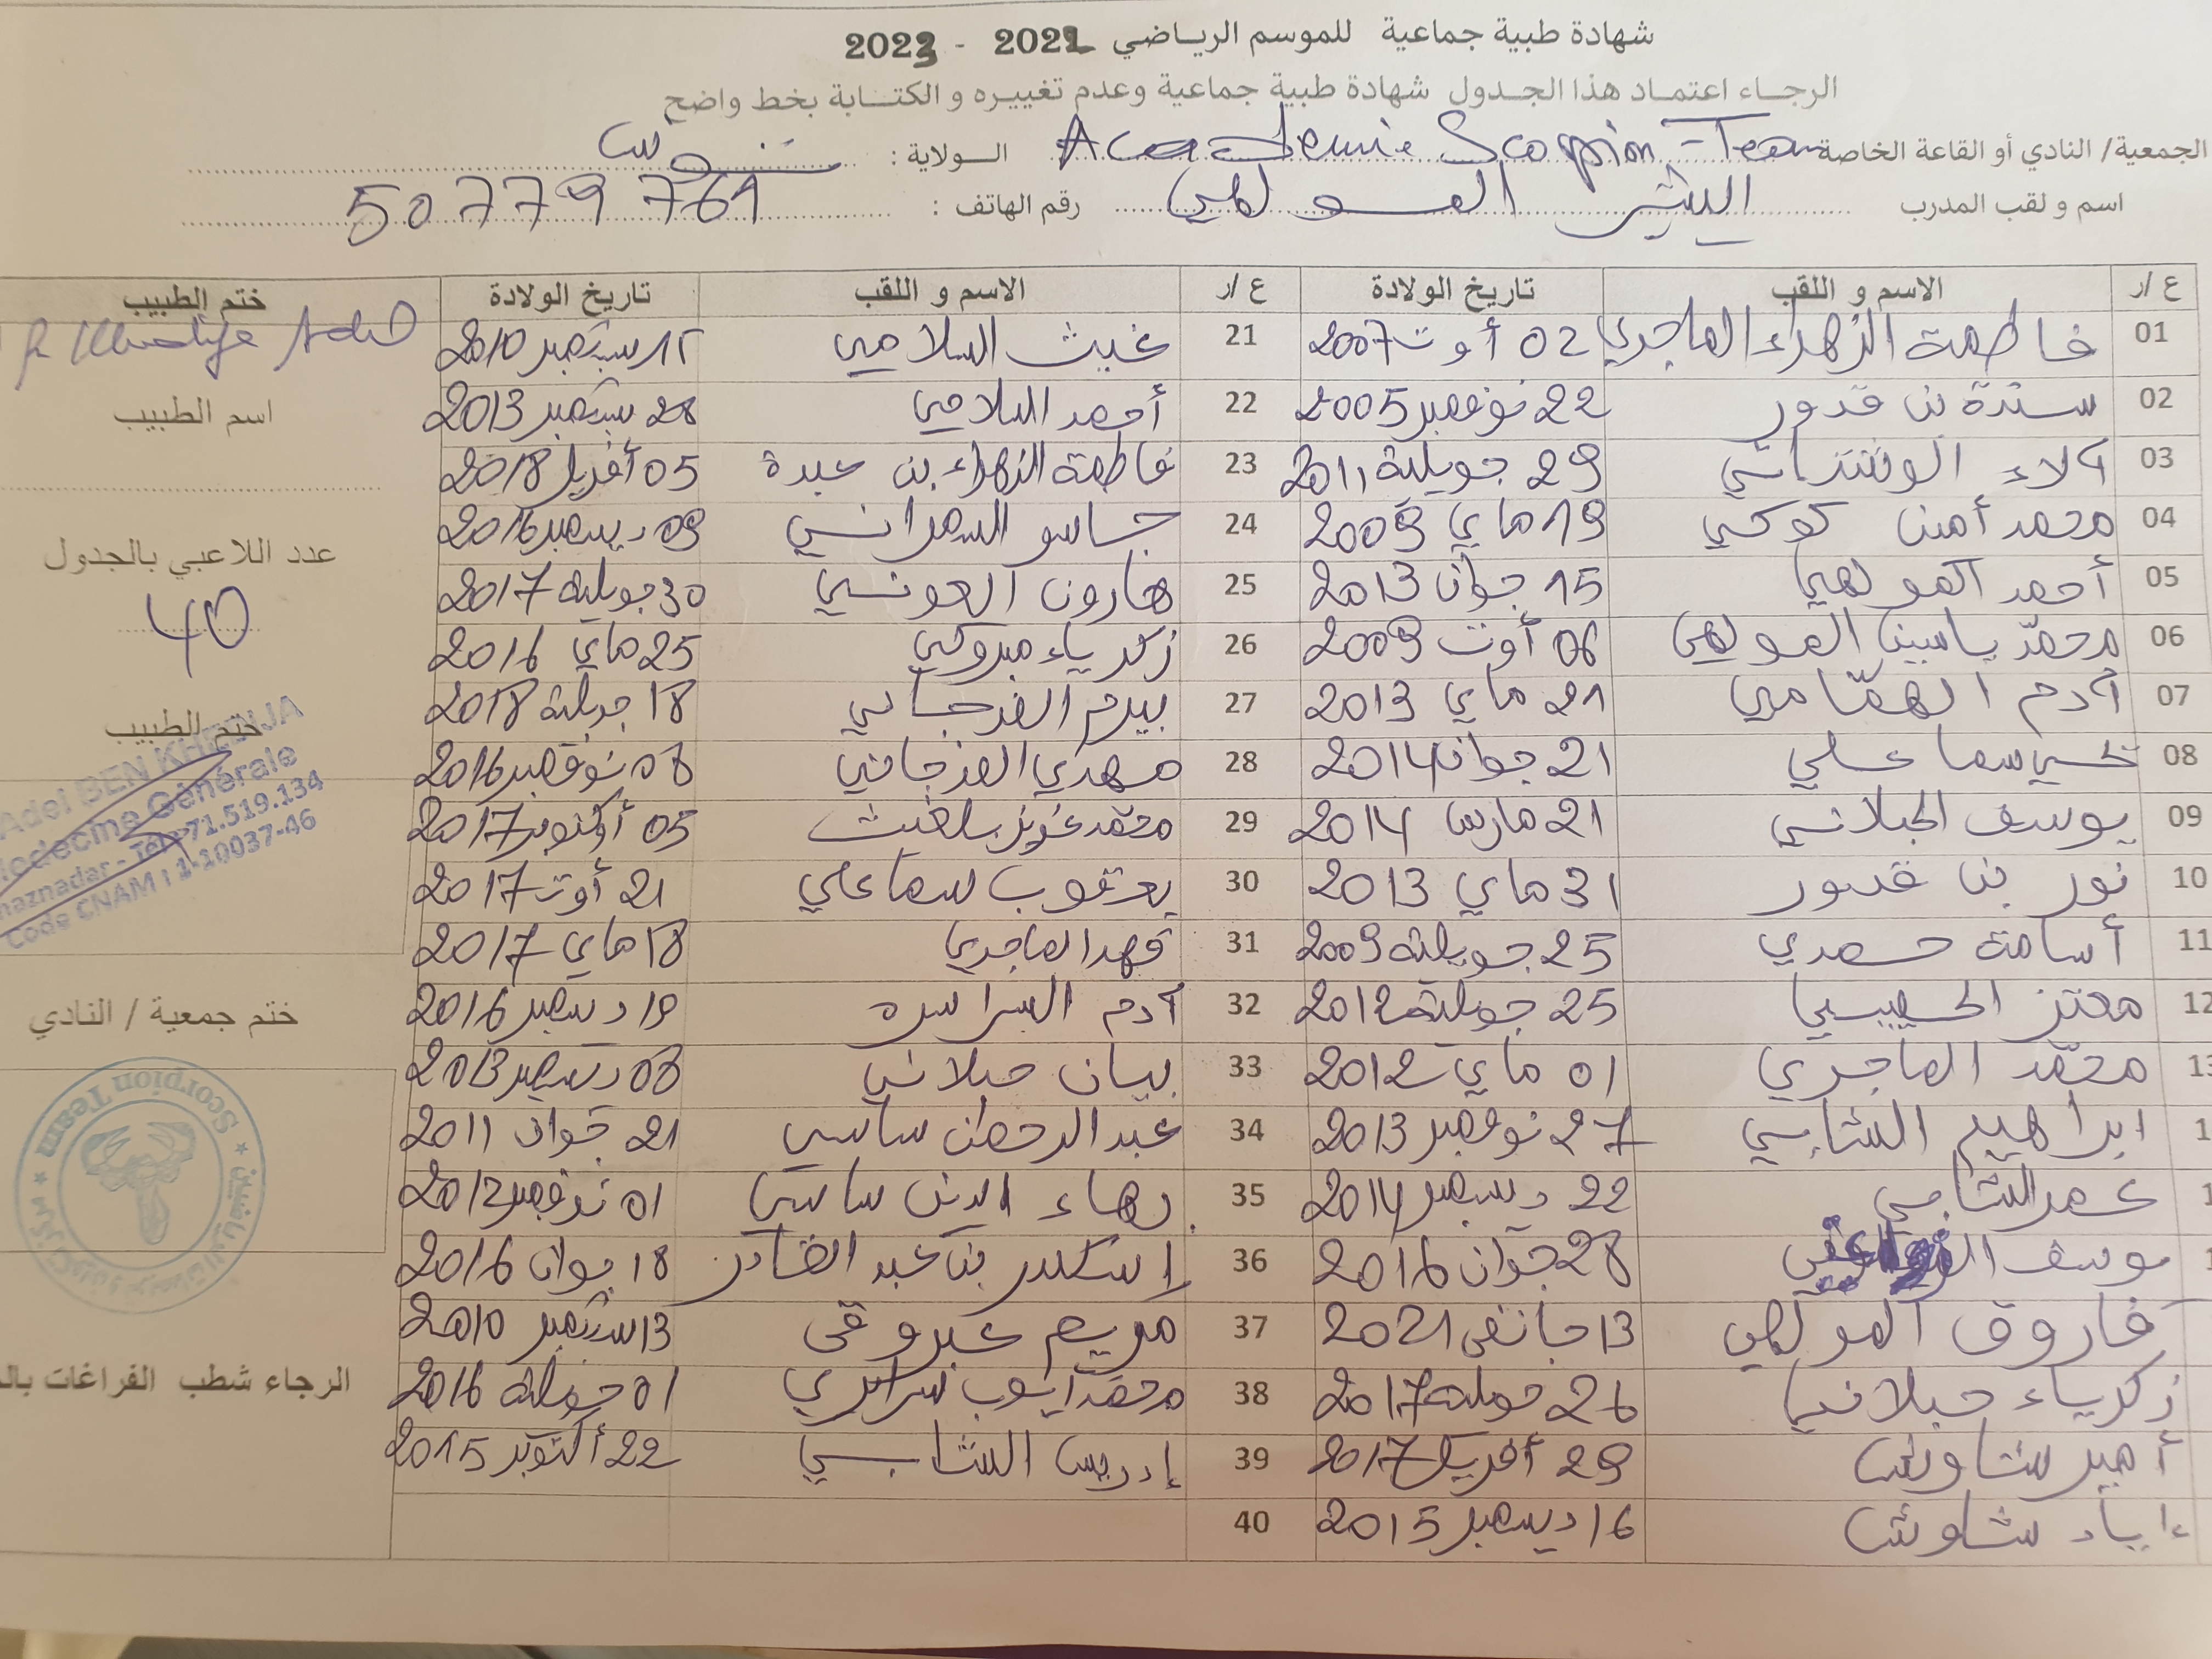 شهادة طبية جماعية للموسم الرياضي 2022 - 2023
الرجاء اعتماد هذا الجدول شهادة طبية جماعية وعدم تغييره و الكتابة بخط واضح
الجمعية/ النادي أو القاعة الخاصة Academie Scorpion-Team الولاية : تونس
اسم و لقب المدرب البشير المولهي رقم الهاتف : 50779761
ع /ر الاسم و اللقب تاريخ الولادة ع /ر الاسم و اللقب تاريخ الولادة ختم الطبيب
01 فاطمة الزهراء الماجري 02 أوت 2007 21 غيث السلامي 15 سبتمبر 2010
02 سندة بن قدور 22 نوفمبر 2005 22 أحمد السلامي 28 سبتمبر 2013
اسم الطبيب
03 آلاء الوشتاتي 29 جويلية 2011 23 فاطمة الزهراء بن عبدة 05 أفريل 2018
04 محمد أمين كوكي 19 ماي 2009 24 09 ديسمبر 2016
عدد اللاعبي بالجدول
40
05 أحمد المولهي 15 جوان 2013 25 هارون العونسي 30 جويلية 2017
06 محمّد ياسين المولهي 06 أوت 2009 26 زكرياء مبروكي 25 ماي 2016
07 آدم الهمّامي 21 ماي 2013 27 بيرم الفرجاني 18 جويلية 2018
ختم الطبيب
08 سماعلي 21 جوان 2014 28 مهدي الفرجاني 08 نوفمبر 2016
Adel BEN KHELIJA
Medecine Générale
71.519.134
Code CNAM : 1-10037-46
09 يوسف الجبلاني 21 مارس 2014 29 محمّد عزيز بلغيث 05 أكتوبر 2017
10 نور بن قدور 31 ماي 2013 30 يعقوب سماعلي 21 أوت 2017
11 أسامة حمدي 25 جويلية 2009 31 فهد الماجري 18 ماي 2017
12 معتز الحبيبي 25 جويلية 2012 32 آدم 19 ديسمبر 2016
ختم جمعية / النادي
13 محمّد الماجري 01 ماي 2012 33 بيان جبلاني 08 ديسمبر 2013
Scorpion Team
1 ابراهيم الشابي 27 نوفمبر 2013 34 عبد الرحمان ساسي 21 جوان 2011
1 عمر الشابي 22 ديسمبر 2014 35 بهاء الدين ساسي 01 نوفمبر 2012
1 يوسف 28 جوان 2016 36 إسكندر بن عبد القادر 18 جوان 2016
فاروق المولهي 13 جانفي 2021 37 مريم عبروقي 13 سبتمبر 2010
الرجاء شطب الفراغات
زكرياء جبلاني 26 جويلية 2017 38 محمّد أيوب 01 جويلية 2016
أمير شاوش 29 أفريل 2017 39 إدريس الشابي 22 أكتوبر 2015
إياد شاوش 16 ديسمبر 2015 40